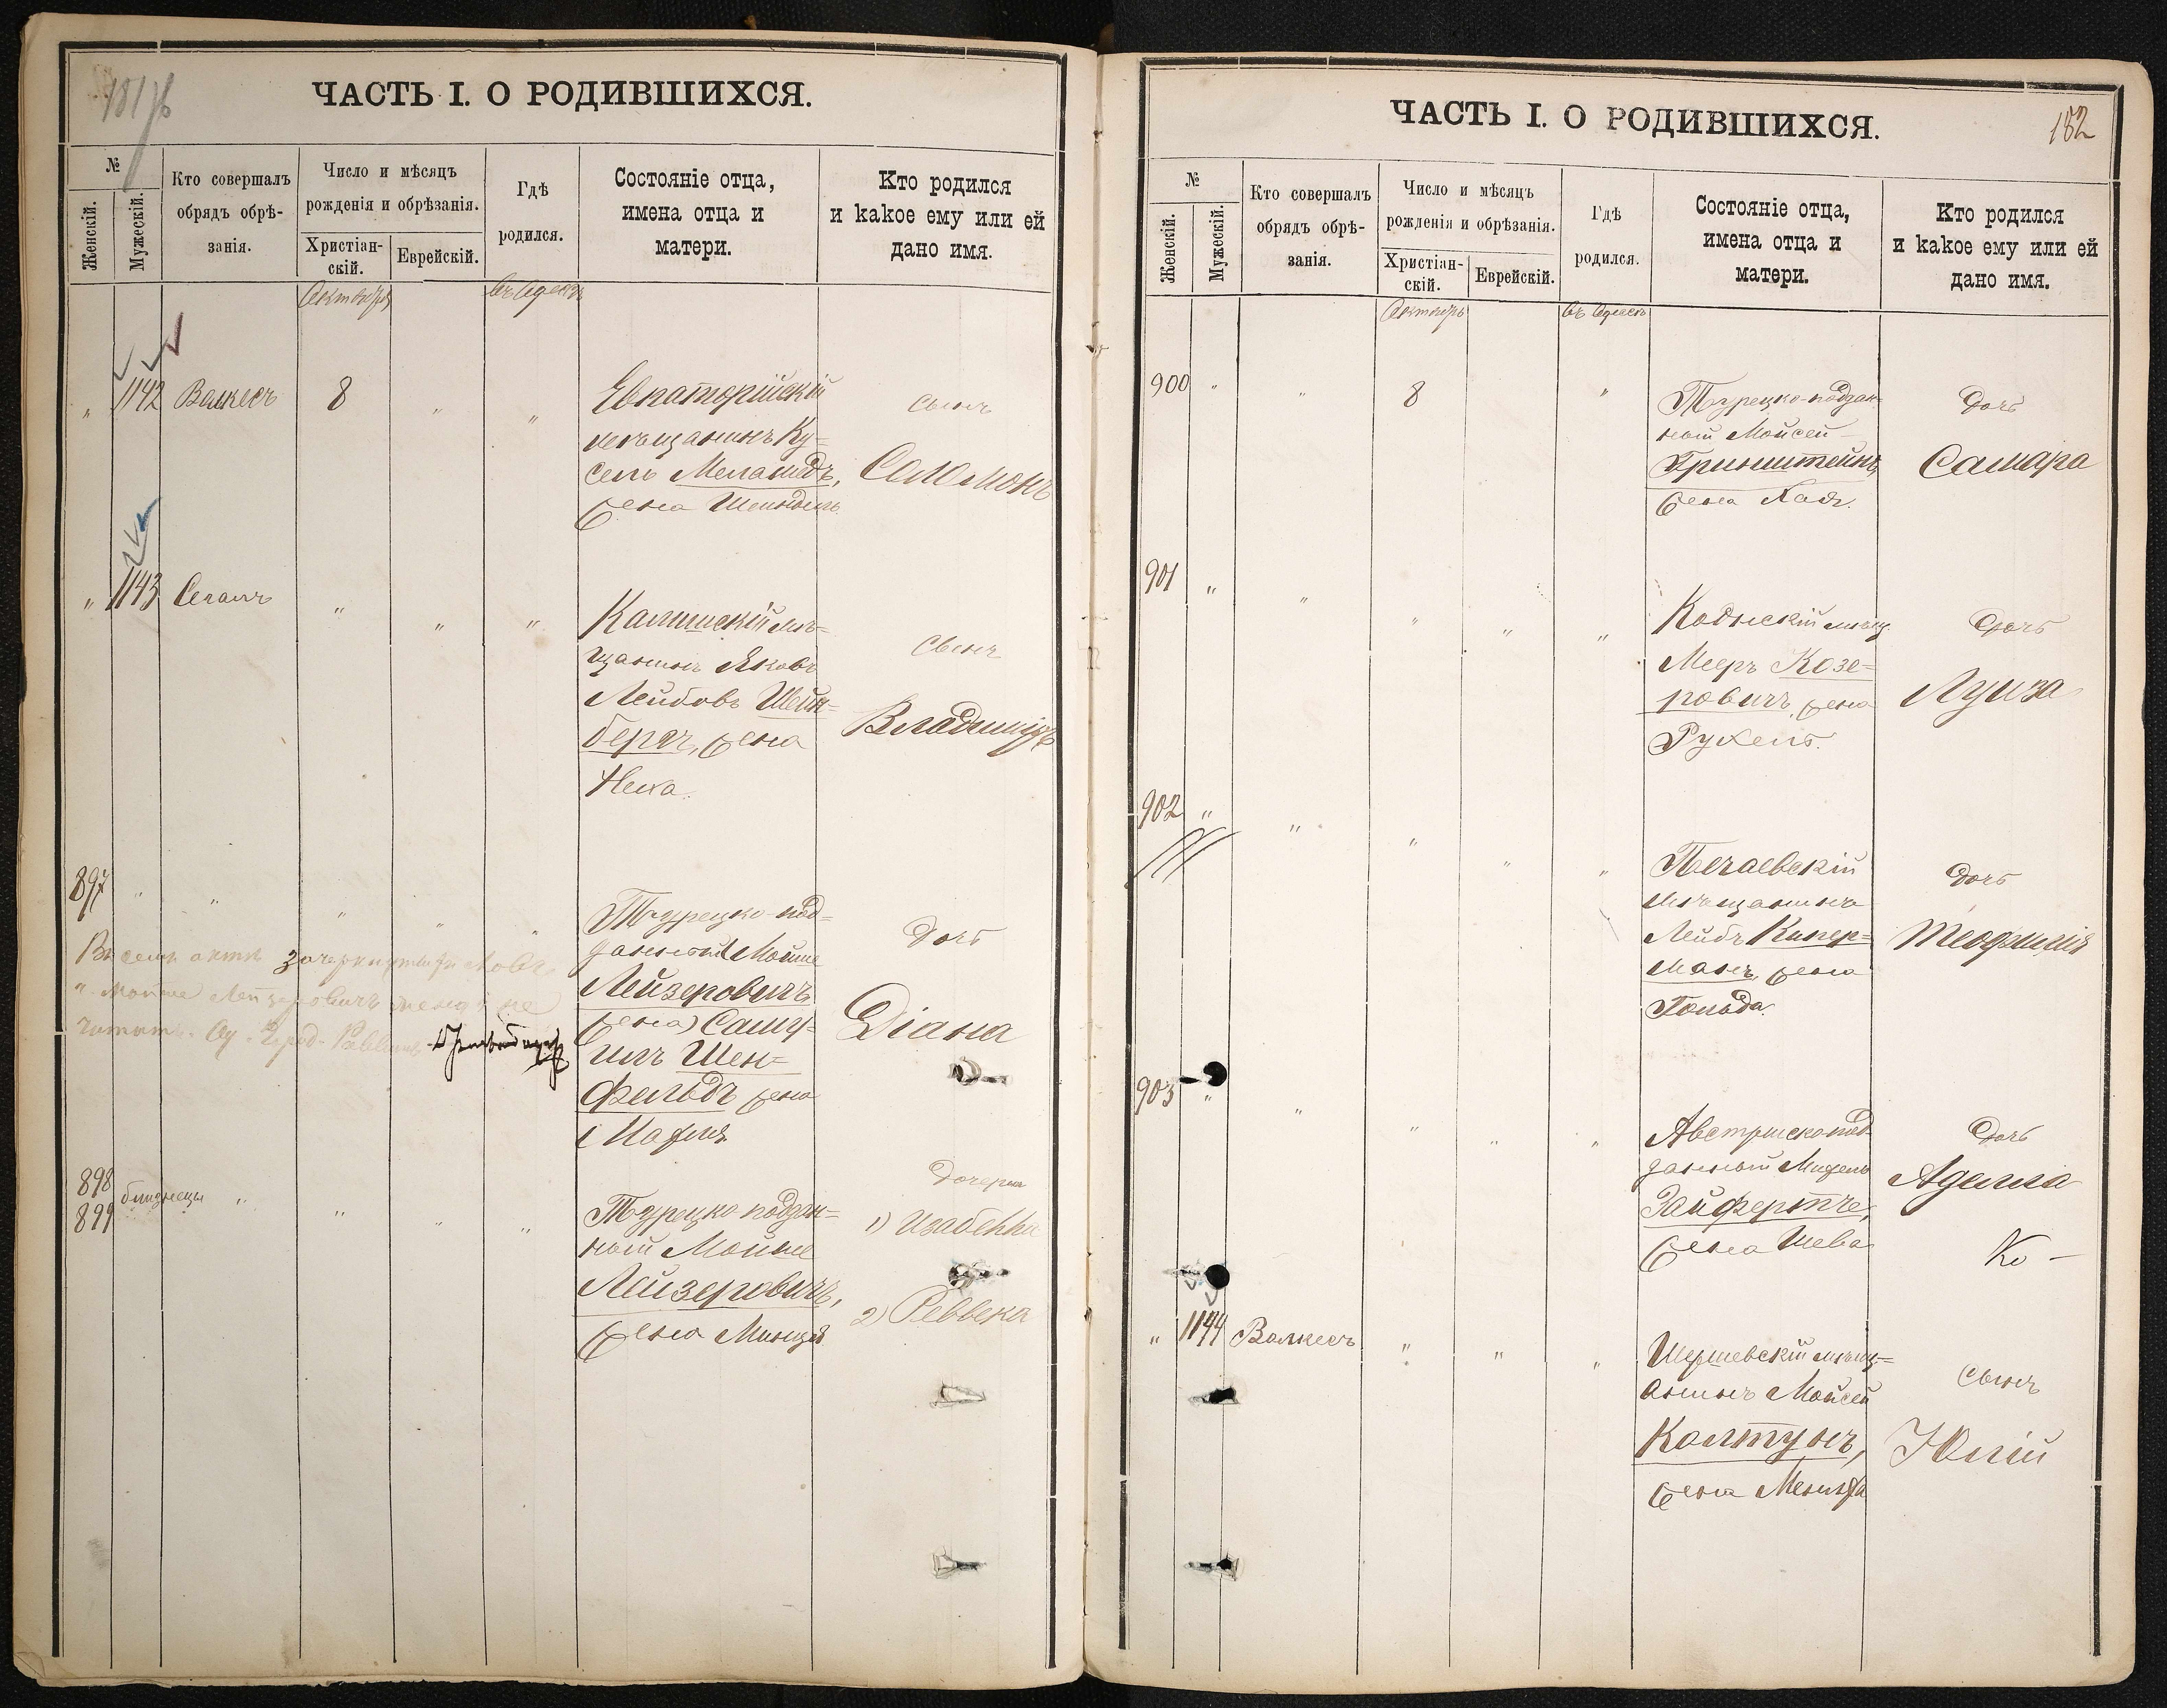 181 об
ЧАСТЬ I. О РОДИВШИХСЯ.
№
Женскій.
Мужескій.
Кто совершалъ
обрядъ обрѣ-
занія.
Число и мѣсяцъ
рожденія и обрѣзанія.
Христіан-
скій.
Еврейскій.
Гдѣ
родился.
Состояніе отца,
имена отца и
матери.
Кто родился
и какое ему или ей
дано имя.
Октября
въ Одессѣ
" 1142 Валкесъ 8 " "
Евпаторійскій
мѣщанинъ Ку=
сель Меламедъ,
жена Шейндель
сынъ
Соломонъ
" 1143 Сегалъ " " "
Калишскій мѣ=
щанинъ Яковъ
Лейбовъ Шейн=
бергъ, жена
Неха.
сынъ
Владиміръ
897 " " " " "
Турецко-под=
данный Мойше
Лейзеровичъ
(жена) Саму=
илъ Шен=
фельдъ жена
дочь
Діана
Въ семъ актѣ зачеркнутыя слова
" Мойше Лейзеровичъ жена" не
читать. Од. Город. Раввинъ
898
899
близнецы " " " "
Турецко поддан=
ный Мойше
Лейзеровичъ,
жена Минця
дочери
1) Изабелла
2) Реввека
ЧАСТЬ I. О РОДИВШИХСЯ.
182
№
Женскій.
Мужескій.
Кто совершалъ
обрядъ обрѣ-
занія.
Число и мѣсяцъ
рожденія и обрѣзанія.
Христіан-
скій.
Еврейскій.
Гдѣ
родился.
Состояніе отца,
имена отца и
матери.
Кто родился
и какое ему или ей
дано имя.
Октябрь
въ Одессѣ
900 " " 8 "
Турецко-поддан=
ный Мойсей
Гринштейнъ,
жена Хая.
дочь
Самара
901 " " " " "
Коднскій мѣщ.
Мееръ Козе=
ровичъ, жена
Рухель.
дочь
Луиза
902 " " " " "
мѣщанинъ
Лейбъ Кипер=
манъ, жена
Гольда.
дочь
Теофилія
903 " " " " "
Австрійскопод-
данный
Зайфертъ,
жена Шева
дочь
Аделла
Ко —
" 1144 Валкесъ " " "
Шершевскій мѣщ=
анинъ Мойсей
Колтунъ,
жена
сынъ
Юлій